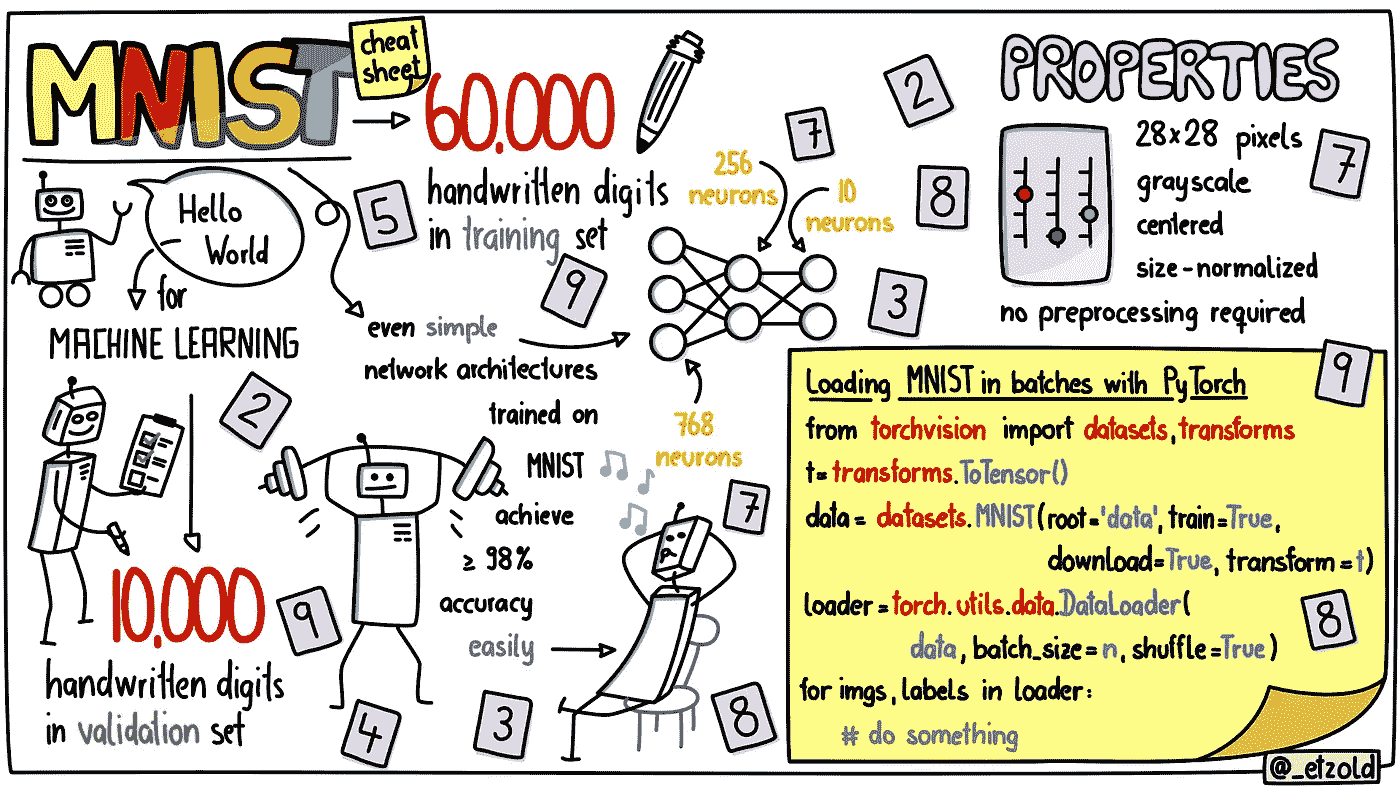 MNIST
cheat
sheet
60.000
handwritten digits
in training set
Hello
World
for
MACHINE LEARNING
10.000
handwritten digits
in validation set
even simple
network architectures
trained on
MNIST
achieve
≥ 98%
accuracy
easily
256
neurons
10
neurons
768
neurons
5
9
2
9
4
3
7
8
7
2
8
3
PROPERTIES
28x28 pixels
grayscale
centered
size-normalized
no preprocessing required
7
9
Loading MNIST in batches with PyTorch
from torchvision import datasets, transforms
t= transforms.ToTensor()
data= datasets.MNIST(root='data', train=True,
download=True, transform=t)
loader=torch.utils.data.DataLoader(
data, batch_size=n, shuffle=True)
for imgs, labels in loader:
# do something
8
@_etzold